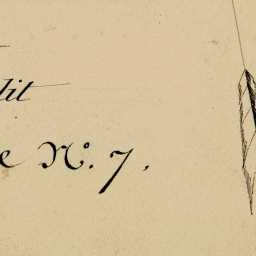 dit
e No. 7.